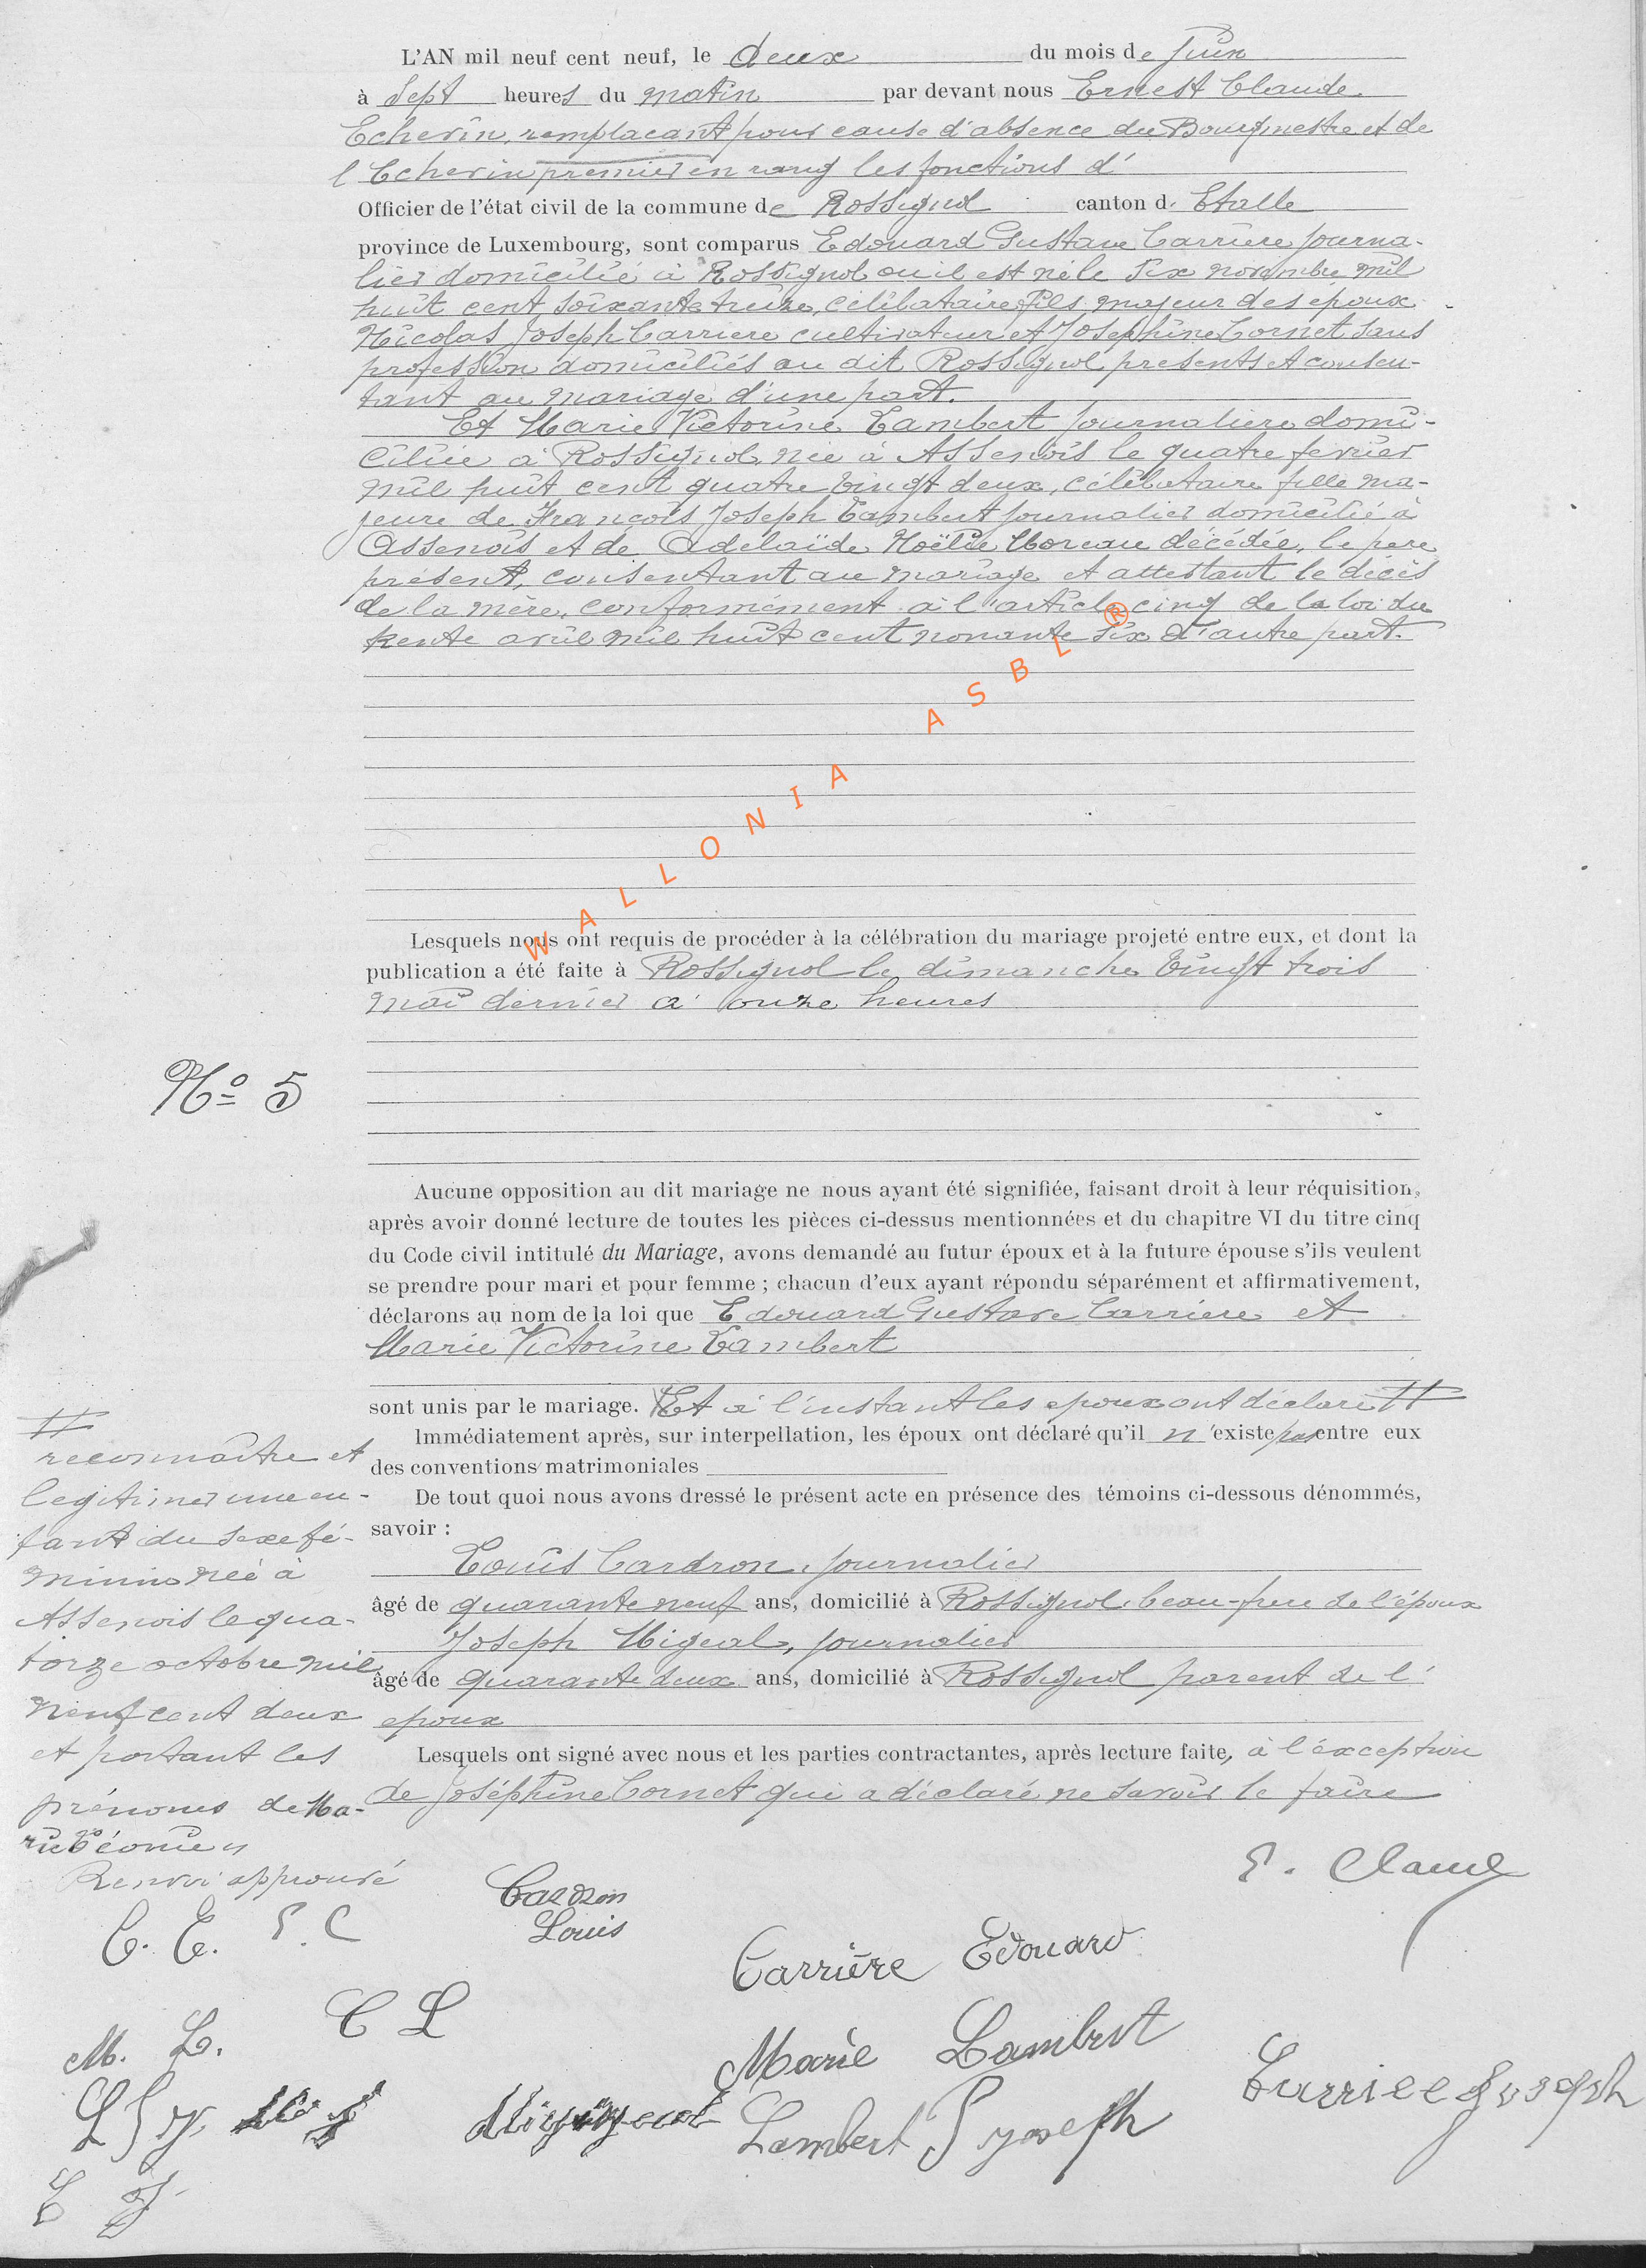 L'AN mil neuf cent neuf, le deux du mois de Juin
à Sept heures du matin par devant nous Ernest Claude
Echevin, remplaçant pour cause d'absence du Bourgmestre et de
l'Echevin premier en rang les fonctions d'
Officier de l'état civil de la commune de Rossignol canton d. Etalle
province de Luxembourg, sont comparus Edouard Gustave Carriere journa-
lier domicilié à Rossignol où il est né le six novembre mil
huit cent soixante treize, célibataire, fils majeur des époux
Nicolas Joseph Carriere cultivateur et Joséphine Cornet sans
profession domiciliés au dit Rossignol présents et consen-
tant au mariage d'une part.
Et Marie Victorine Lambert journaliere domi-
ciliée à Rossignol, née à Assenois le quatre fevrier
mil huit cent quatre vingt deux, célibataire fille ma-
jeure de François Joseph Lambert journalier domicilié à
Assenois et de Adelaïde Noëlie Moreau décédée, le pere
présent, consentant au mariage et attestant le décès
de la mère, conformément à l'article cinq de la loi du
trente avril mil huit cent nonante six d'autre part.
WALLONIA ASBL ®
Lesquels nous ont requis de procéder à la célébration du mariage projeté entre eux, et dont la
publication a été faite à Rossignol le dimanche vingt trois
mai dernier à onze heures
No 5
Aucune opposition au dit mariage ne nous ayant été signifiée, faisant droit à leur réquisition,
après avoir donné lecture de toutes les pièces ci-dessus mentionnées et du chapitre VI du titre cinq
du Code civil intitulé du Mariage, avons demandé au futur époux et à la future épouse s'ils veulent
se prendre pour mari et pour femme ; chacun d'eux ayant répondu séparément et affirmativement,
déclarons au nom de la loi que Edouard Gustave Carriere et
Marie Victorine Lambert
sont unis par le mariage. Et à l'instant les epoux ont déclaré #
Immédiatement après, sur interpellation, les époux ont déclaré qu'il n'existe pas entre eux
des conventions matrimoniales
De tout quoi nous avons dressé le présent acte en présence des témoins ci-dessous dénommés,
savoir :
Louis Cardron, journalier
âgé de quarante neuf ans, domicilié à Rossignol, beau-frere de l'époux
Joseph Migeal, journalier
âgé de quarante deux ans, domicilié à Rossignol parent de l'
epoux
Lesquels ont signé avec nous et les parties contractantes, après lecture faite, à l'exception
de Joséphine Cornet qui a déclaré ne savoir le faire
#
reconnaitre et
legitimer une en-
fant du sexe fé-
minin née à
Assenois le qua-
torze octobre mil
neuf cent deux
et portant les
prénoms de Ma-
rie Léonie
Renvoi approuvé
C. E. E. C
C L
M. L.
L J
C J
E. Claude
Cardron
Louis
Carrière Edouard
Marie Lambert
Lambert F joseph
Carriere Joseph